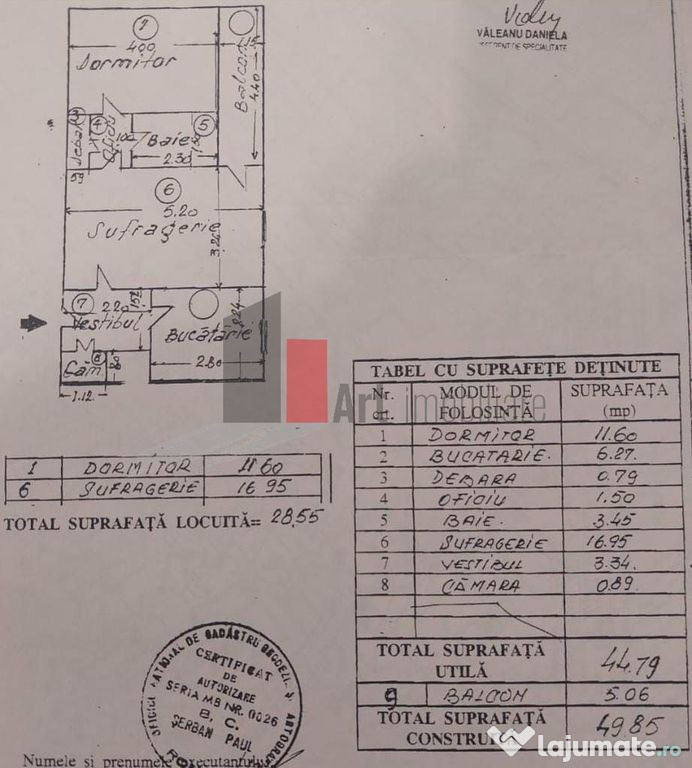 VĂLEANU DANIELA
1
400
Dormitor
1.15
Balcon
4.40
4
5
Oficiu
1.00
Baie
2.30
6
5.20
Sufragerie
3.26
7
2.20
1.52
Vestibul
Bucătărie
2.24
2.80
8
Căm
1.12
TABEL CU SUPRAFEȚE DEȚINUTE
Nr. crt. MODUL DE FOLOSINȚĂ SUPRAFAȚA (mp)
1 DORMITOR 11.60
2 BUCATARIE. 6.27.
3 DEBARA 0.79
4 OFICIU 1.50
5 BAIE. 3.45
6 SUFRAGERIE 16.95
7 VESTIBUL 3.34.
8 CĂMARA 0.89.
TOTAL SUPRAFAȚĂ UTILĂ 44.79
9 BALCON 5.06
TOTAL SUPRAFAȚĂ CONSTRUITĂ 49.85
1 DORMITOR 11.60
6 SUFRAGERIE 16.95
TOTAL SUPRAFAȚĂ LOCUITĂ= 28,55
CERTIFICAT
DE
AUTORIZARE
SERIA MB NR. 0026
B, C,
ȘERBAN PAUL
Numele si prenumele executantului
Art imobiliare
lajumate.ro